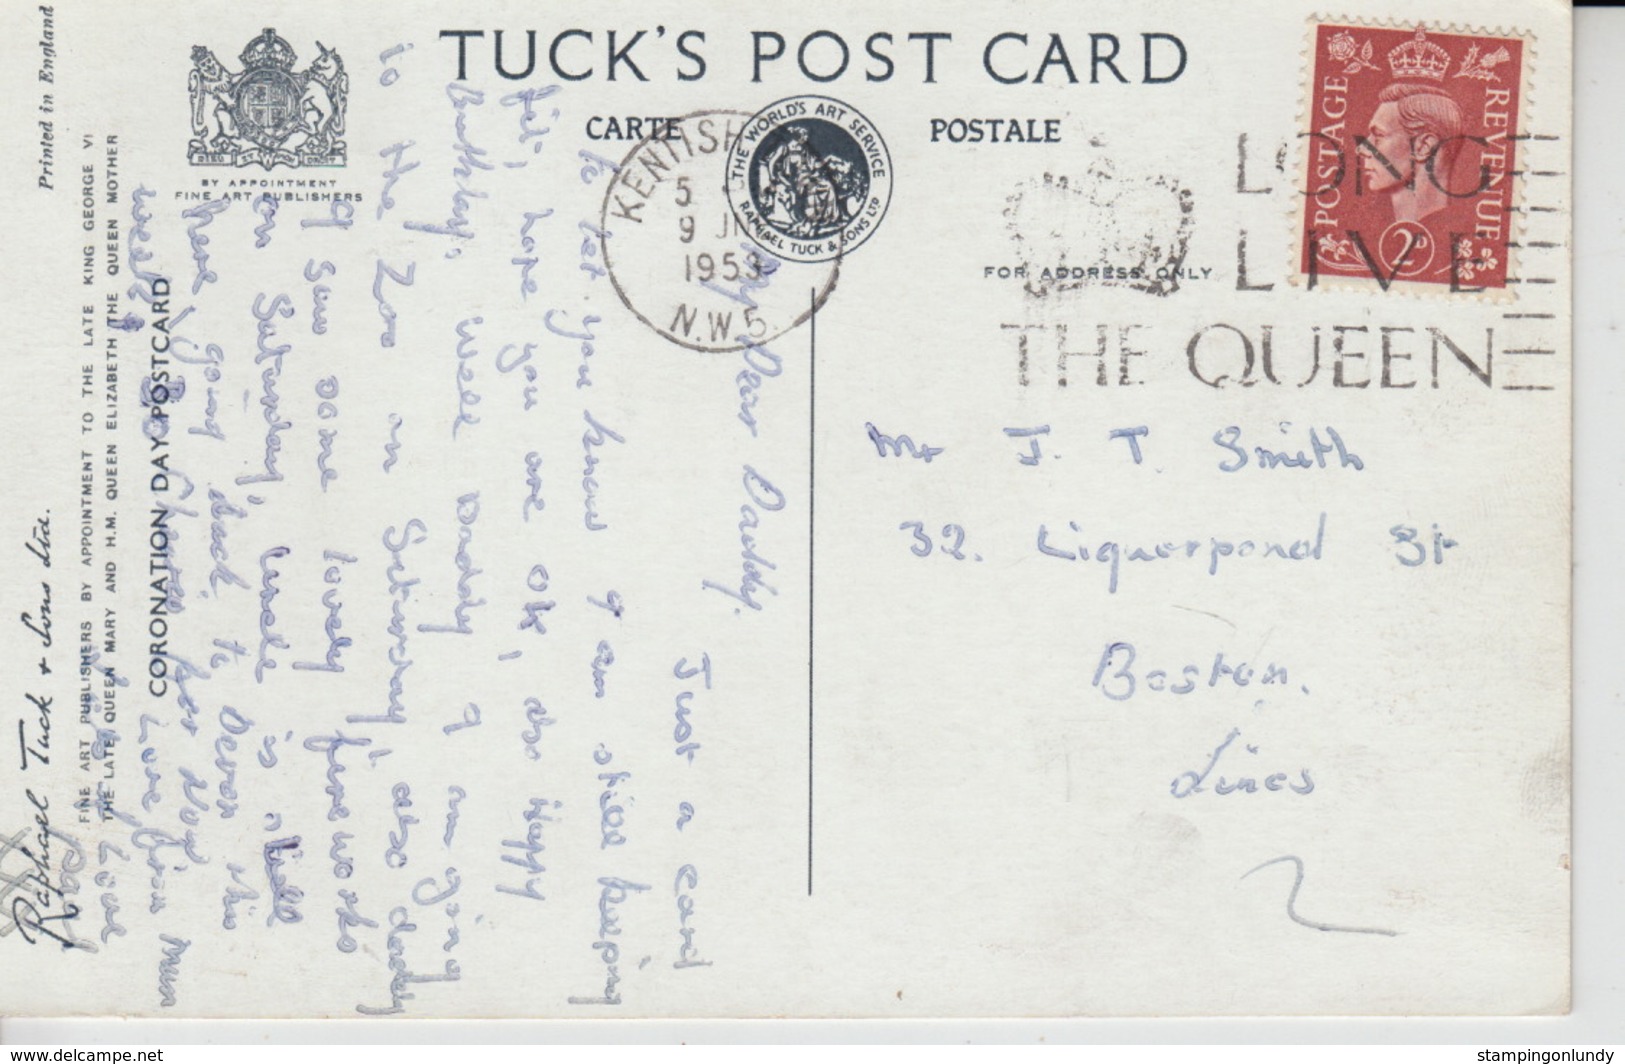 TUCK'S POST CARD
CARTE POSTALE
THE WORLD'S ART SERVICE
RAPHAEL TUCK & SONS LTD
FOR ADDRESS ONLY
BY APPOINTMENT
FINE ART PUBLISHERS
DIEU ET MON DROIT
POSTAGE REVENUE
2D
KENTISH
5
9 JU
1953
N.W.5.
LONG
LIVE
THE QUEEN
Mr J. T. Smith
32. Liquorpond St
Boston.
Lincs
My Dear Daddy.
Just a card
to let you know I am still keeping
fit, hope you are OK, also Happy
Birthday, Well Daddy I am going
to the Zoo on Saturday, also daddy
I saw some lovely fireworks
on Saturday, Uncle is still
here, going back to Devon this
week, Cheerio for Now
Love from Mum
Love
CORONATION DAY POSTCARD
THE LATE QUEEN MARY AND H.M. QUEEN ELIZABETH THE QUEEN MOTHER
FINE ART PUBLISHERS BY APPOINTMENT TO THE LATE KING GEORGE VI
Raphael Tuck & Sons Ltd.
Printed in England
stampingonlundy
www.delcampe.net